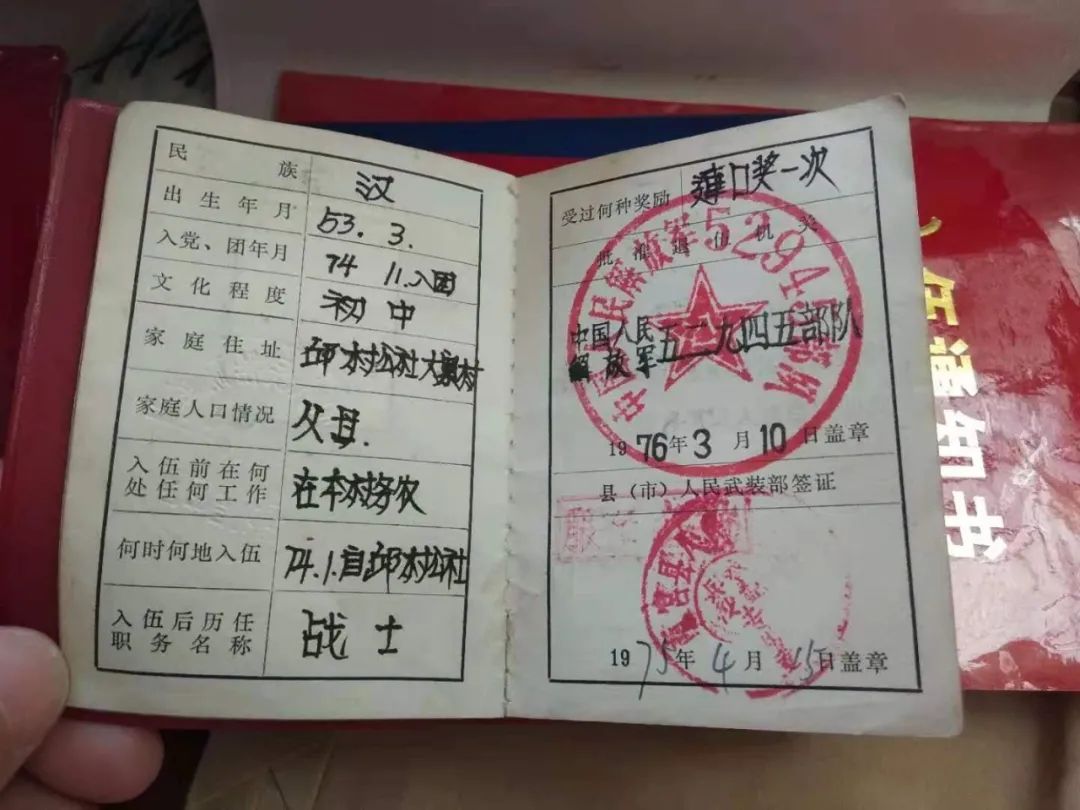 民 族 汉
出生年月 53. 3.
入党、团年月 74 11.入团
文化程度 初中
家庭住址 邱村公社大象村
家庭人口情况 父母.
入伍前在何处任何工作 在本村务农
何时何地入伍 74.1.自邱村公社
入伍后历任职务名称 战士
受过何种奖励 连口奖一次
批准退伍机关
中国人民解放军五二九四五部队
中国人民解放军52945部队
1976年3月10日盖章
县(市)人民武装部签证
1975年4月15日盖章
任通知书